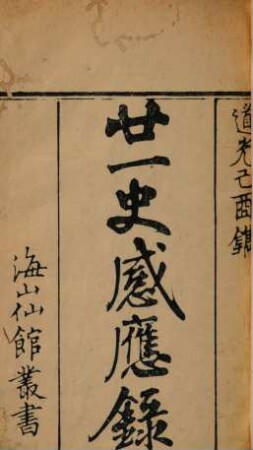 道光己酉鐫
廿一史感應錄
海山仙館叢書